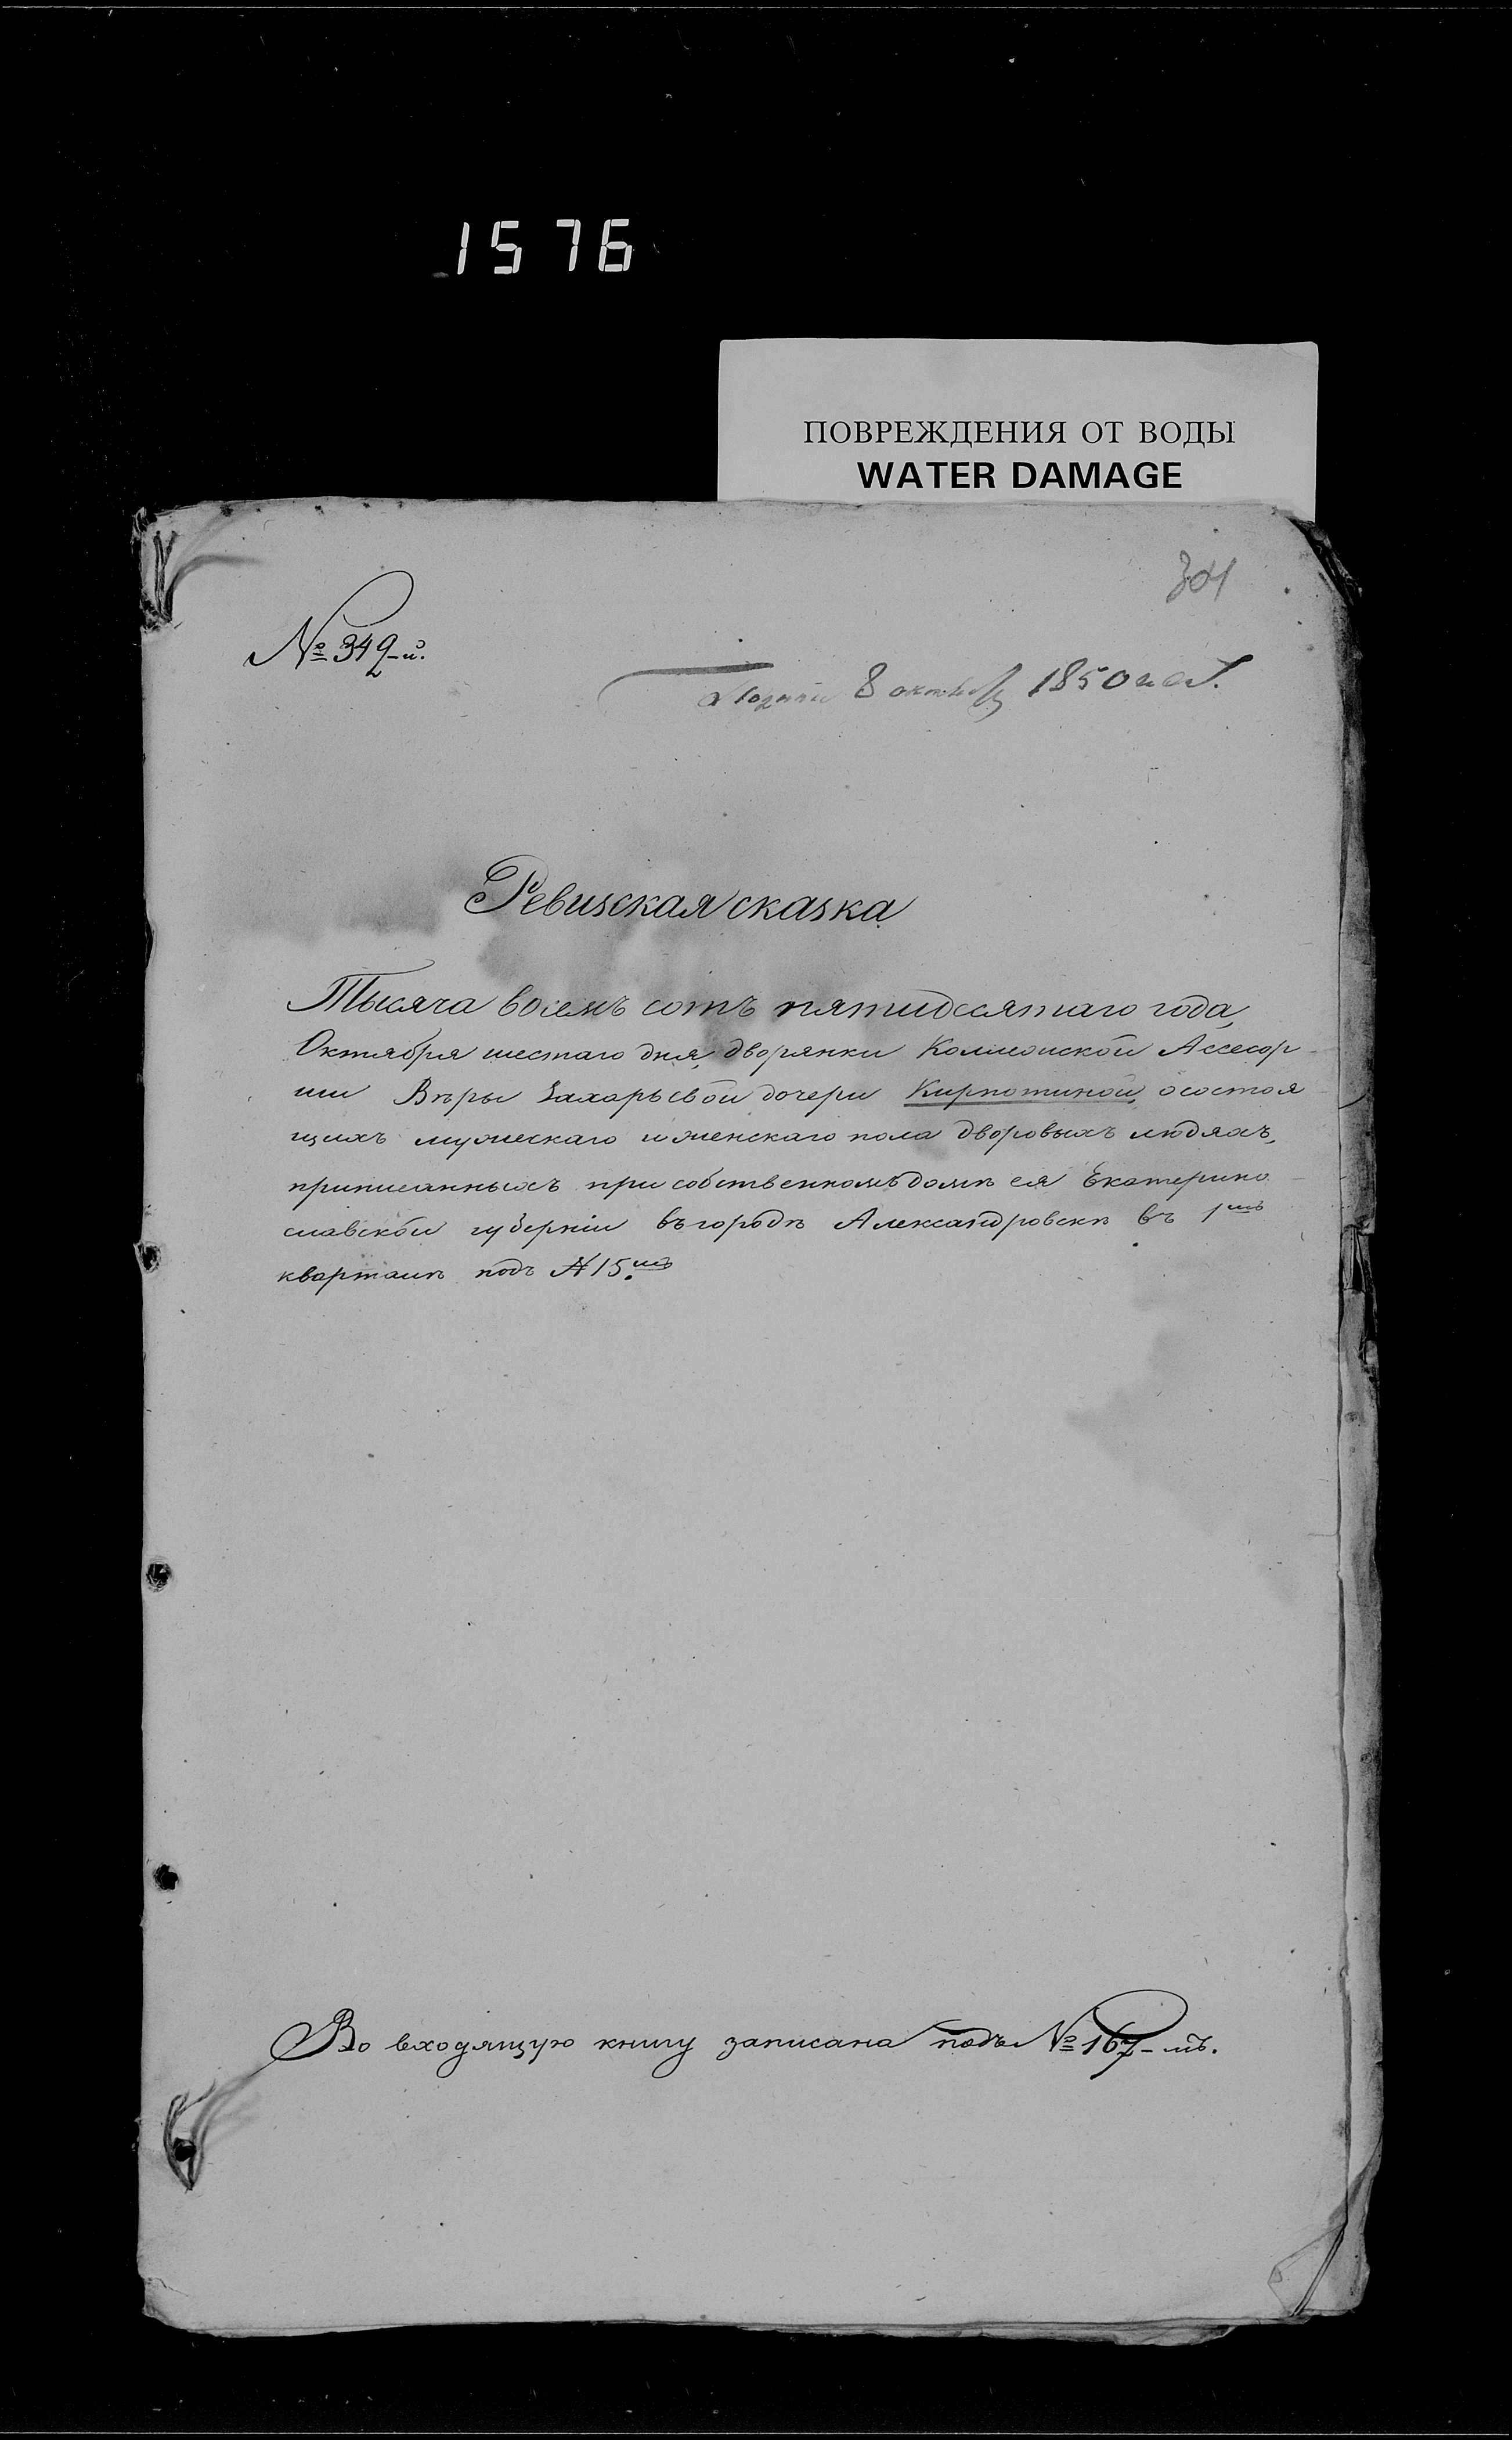 1576
ПОВРЕЖДЕНИЯ ОТ ВОДЫ
WATER DAMAGE
304
№ 349-й.
8 октября 1850 года.
Ревизская сказка
Тысяча восемь сотъ пятидесятаго года,
Октября шестаго дня, дворянки Коллежской Ассесор
ши Вѣры Захарьевой дочери Кирпотиной, о состоя
щихъ мужескаго и женскаго пола дворовыхъ людяхъ,
приписанныхъ при собственномъ домѣ ея Екатерино
славской губерніи въ городѣ Александровскѣ въ 1мъ
кварталѣ подъ № 15.мъ
Во входящую книгу записана подъ № 167-мъ.